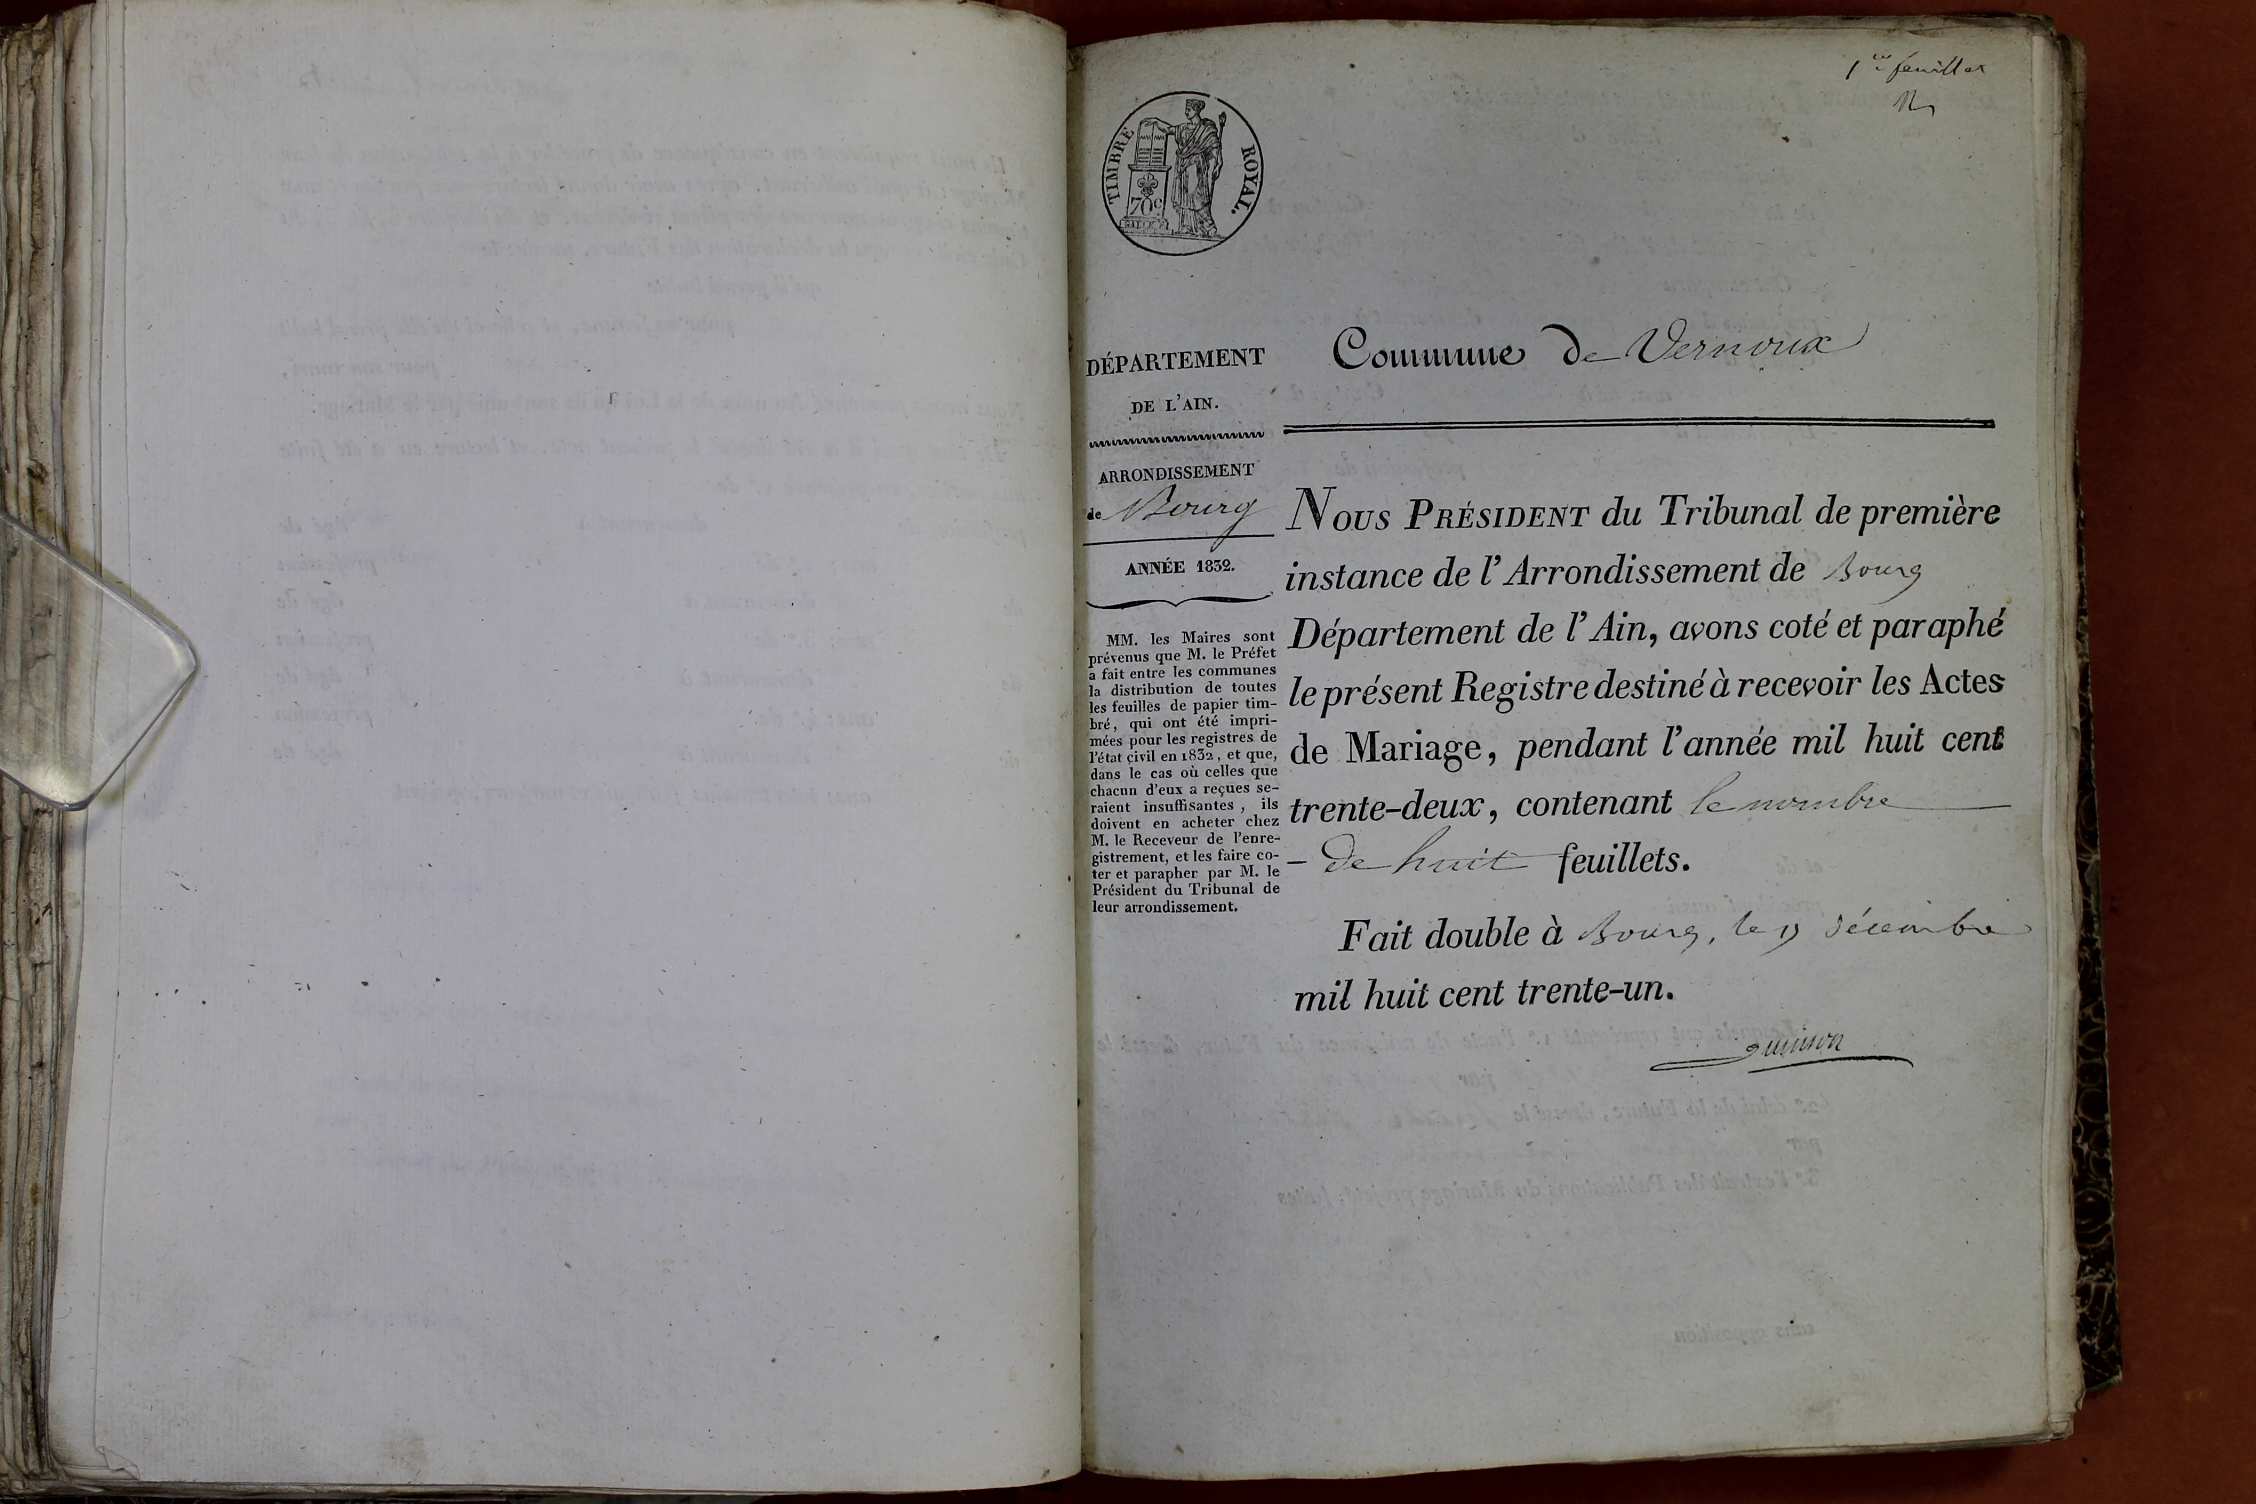 1er feuillet
TIMBRE ROYAL.
70c
DÉPARTEMENT
DE L'AIN.
ARRONDISSEMENT
de Bourg
ANNÉE 1832.
MM. les Maires sont
prévenus que M. le Préfet
a fait entre les communes
la distribution de toutes
les feuilles de papier tim-
bré, qui ont été impri-
mées pour les registres de
l'état civil en 1832, et que,
dans le cas où celles que
chacun d'eux a reçues se-
raient insuffisantes, ils
doivent en acheter chez
M. le Receveur de l'enre-
gistrement, et les faire co-
ter et parapher par M. le
Président du Tribunal de
leur arrondissement.
Commune de Vernoux
NOUS PRÉSIDENT du Tribunal de première
instance de l'Arrondissement de Bourg
Département de l'Ain, avons coté et paraphé
le présent Registre destiné à recevoir les Actes
de Mariage, pendant l'année mil huit cent
trente-deux, contenant le nombre
- de huit feuillets.
Fait double à Bourg, le décembre
mil huit cent trente-un.